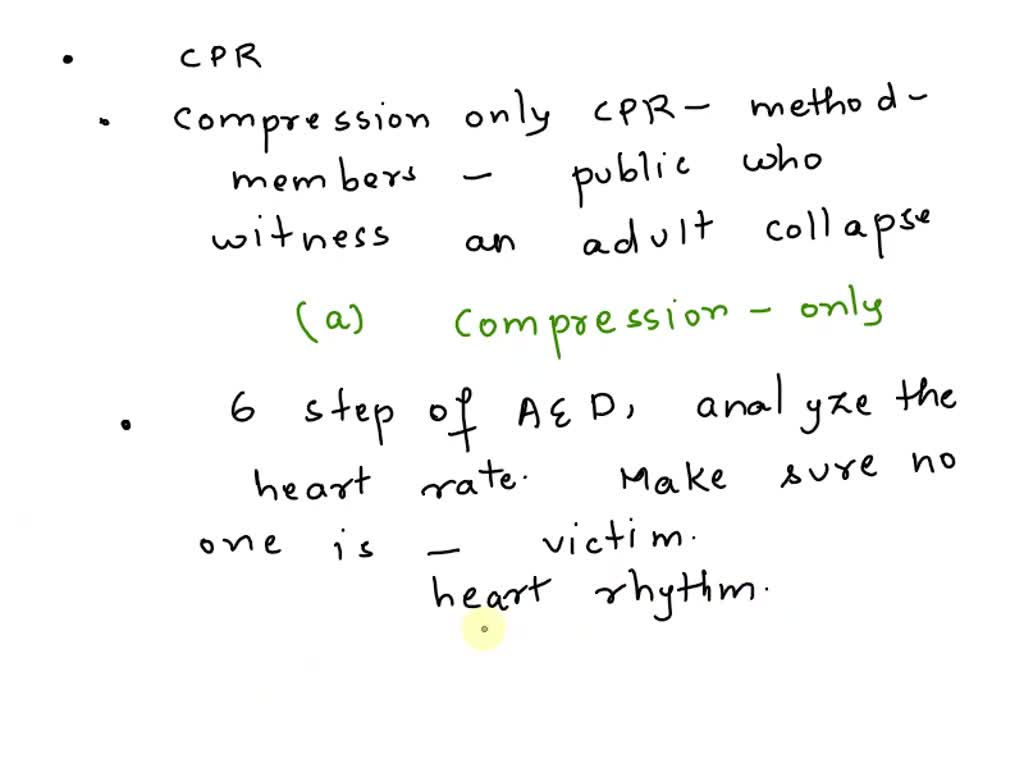 • CPR
• Compression only CPR - method -
members - public who
witness an adult collapse
(a) Compression - only
• 6 step of AED, analyze the
heart rate. Make sure no
one is - victim.
heart rhythm.